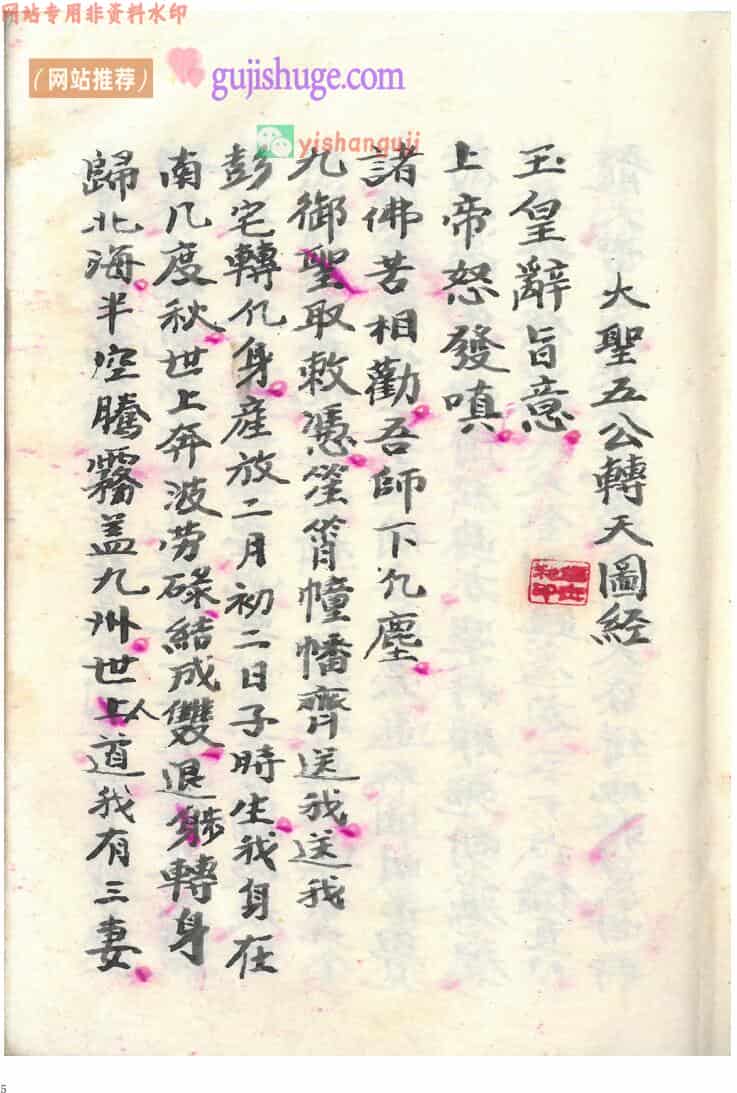 网站专用非资料水印
（网站推荐）
gujishuge.com
yishanguji
大聖五公轉天圖経
玉皇辭旨意
上帝怒發嗔
諸佛苦相勸吾師下凡塵
九御聖取敕憑筀筲幢幡齊送我送我
彭宅轉化身産放二月初二日子時生我身在
南几度秋世上奔波劳碌結成雙退躰轉身
歸北海半空騰霧盖九州世上人道我有三妻
5